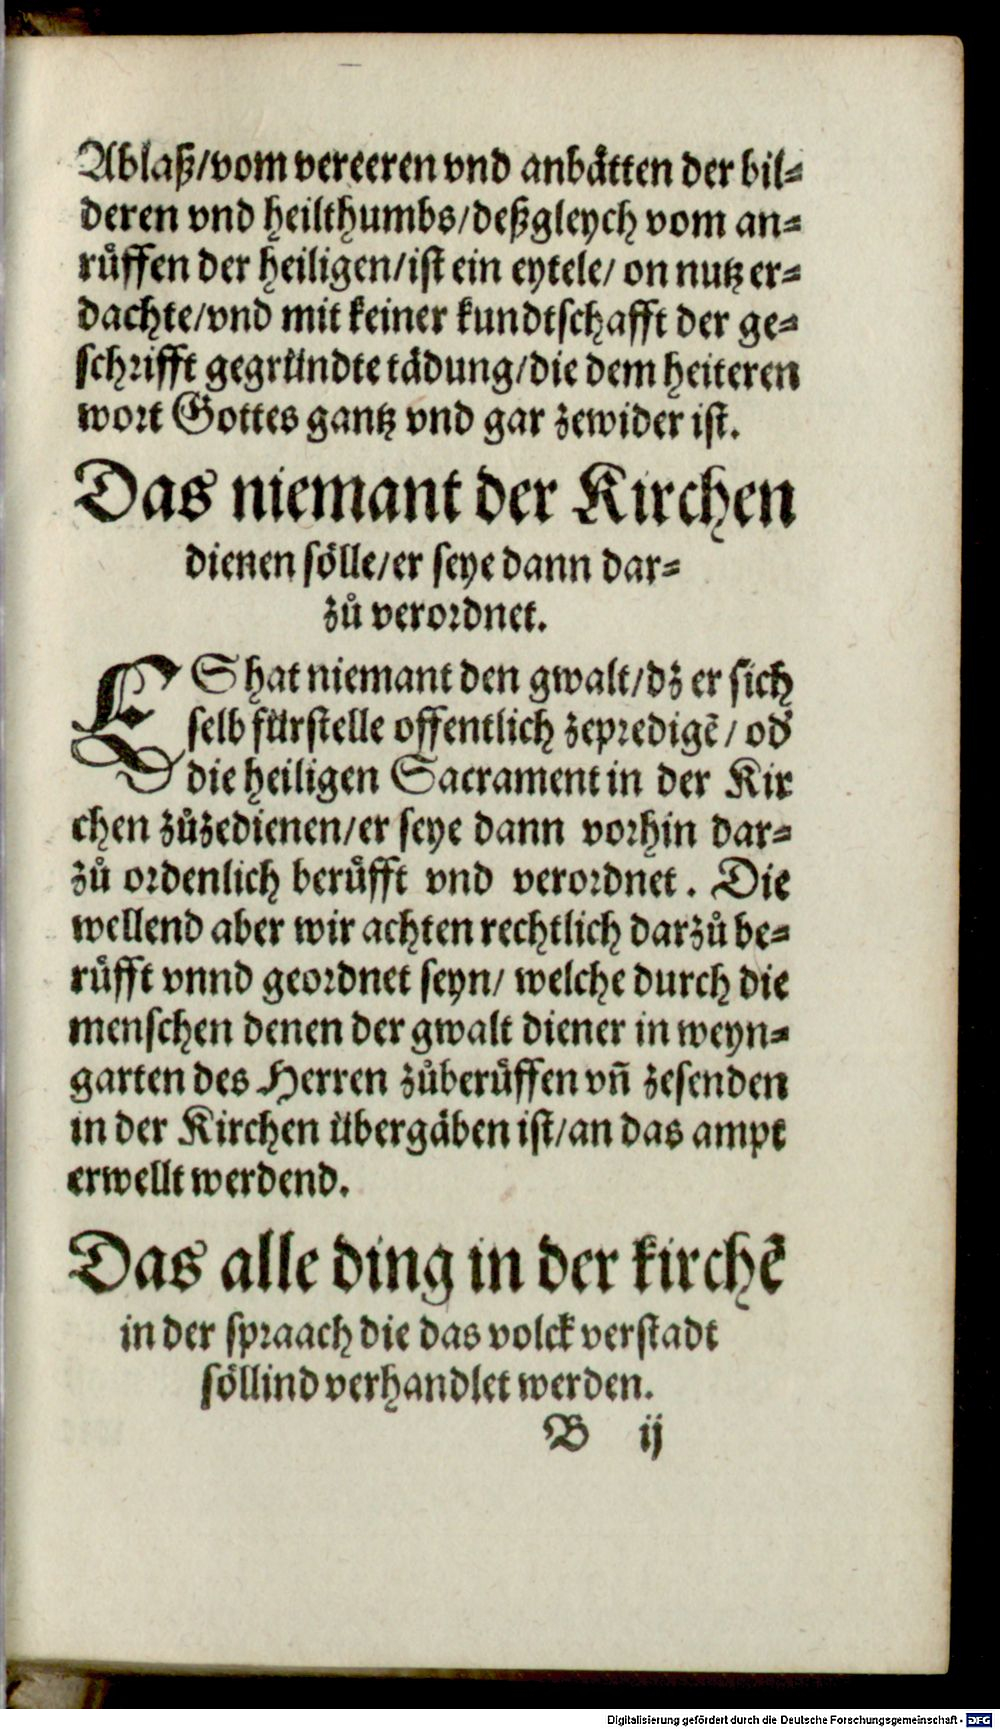 Ablaß/vom vereeren vnd anbätten der bil⸗
deren vnd heilthumbs/deßgleych vom an⸗
rüffen der heiligen/ist ein eytele/ on nutz er⸗
dachte/vnd mit keiner kundtschafft der ge⸗
schrifft gegründte tädung/die dem heiteren
wort Gottes gantz vnd gar zewider ist.
Das niemant der Kirchen
dienen sölle/er seye dann dar⸗
zů verordnet.
ES hat niemant den gwalt/dz er sich
selb fürstelle offentlich zepredigē/ od̕
die heiligen Sacrament in der Kir
chen zůzedienen/er seye dann vorhin dar⸗
zů ordenlich berüfft vnd verordnet. Die
wellend aber wir achten rechtlich darzů be⸗
rüfft vnnd geordnet seyn/ welche durch die
menschen denen der gwalt diener in weyn⸗
garten des Herren zůberüffen vn̄ zesenden
in der Kirchen übergäben ist/an das ampt
erwellt werdend.
Das alle ding in der kirchē
in der spraach die das volck verstadt
söllind verhandlet werden.
B ij
Digitalisierung gefördert durch die Deutsche Forschungsgemeinschaft - DFG